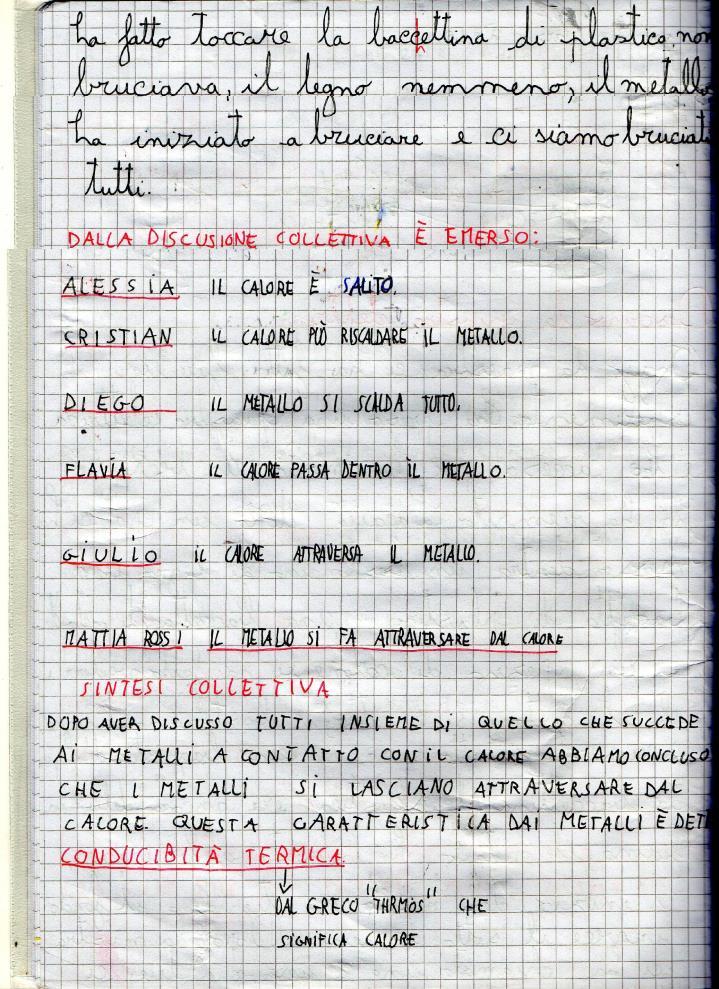 ha fatto toccare la bacchettina di plastica, non
bruciava, il legno nemmeno, il metallo
ha iniziato a bruciare e ci siamo bruciati
tutti.
DALLA DISCUSIONE COLLETTIVA È EMERSO:
ALESSIA IL CALORE È SALITO.
CRISTIAN IL CALORE PUÒ RISCALDARE IL METALLO.
DIEGO IL METALLO SI SCALDA TUTTO.
FLAVIA IL CALORE PASSA DENTRO IL METALLO.
GIULIO IL CALORE ATTRAVERSA IL METALLO.
MATTIA ROSSI IL METALLO SI FA ATTRAVERSARE DAL CALORE
SINTESI COLLETTIVA
DOPO AVER DISCUSSO TUTTI INSIEME DI QUELLO CHE SUCCEDE
AI METALLI A CONTATTO CON IL CALORE ABBIAMO CONCLUSO
CHE I METALLI SI LASCIANO ATTRAVERSARE DAL
CALORE. QUESTA CARATTERISTICA DAI METALLI È DET
CONDUCIBITÀ TERMICA.
DAL GRECO "THRMÒS" CHE
SIGNIFICA CALORE